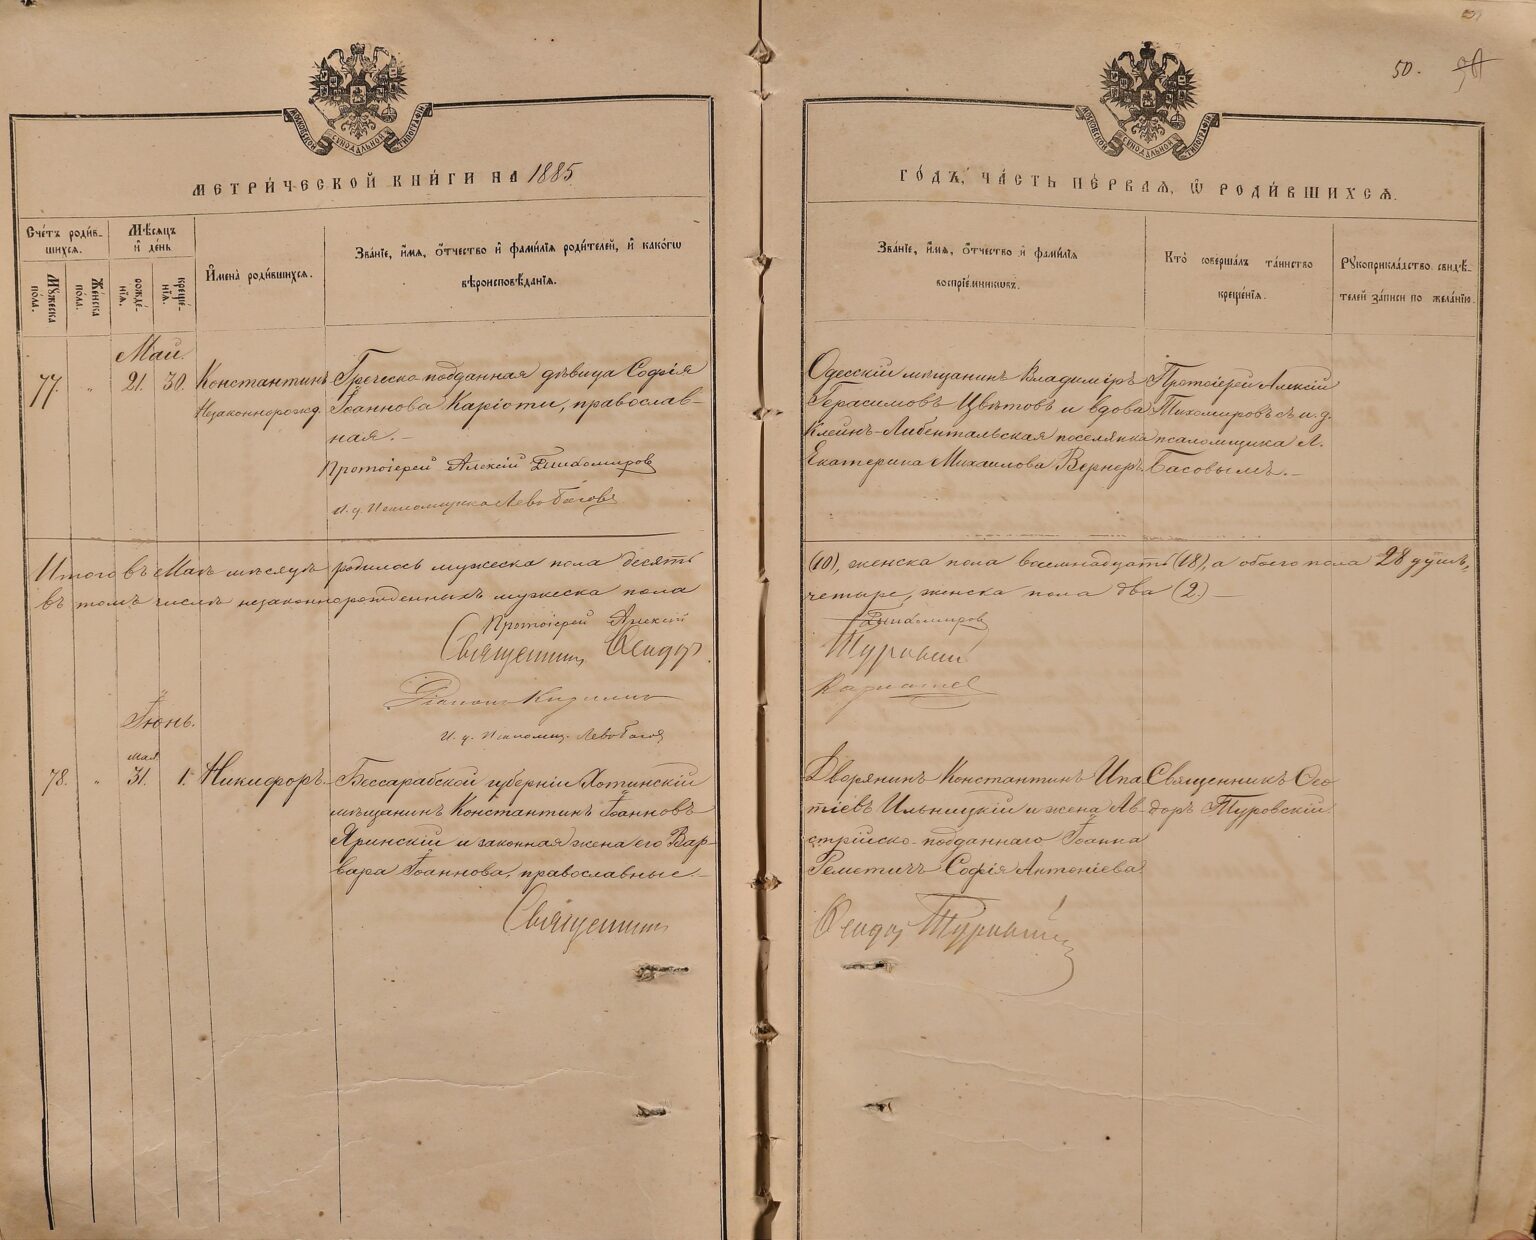 50.
МОСКОВСКОЙ СѴНОДАЛЬНОЙ ТИПОГРАФІИ
МОСКОВСКОЙ СѴНОДАЛЬНОЙ ТИПОГРАФІИ
МЕТРИ́ЧЕСКОЙ КНИ́ГИ НА 1885
ГО́ДЪ, ЧА́СТЬ ПЕ́РВАЯ, Ѡ РОДИ́ВШИХСЯ.
Сче́тъ роди́в-
шихся.
Му́жеска пола.
Же́нска по́ла.
Мѣ́сяцъ и҆ де́нь
рожде́-
нїя.
креще́-
нїя.
И҆мена̀ роди́вшихся.
Зва́нїе, и҆́мя, ѻ҆́тчество и҆ фами́лїя роди́телей, и҆ како́гѡ
вѣроисповѣ́данїя.
Зва́нїе, и҆́мя, ѻ҆́тчество и҆ фами́лїя
воспрїе́мниковъ.
Кто̀ соверша́лъ та́инство
креще́нїя.
Рукоприкла́дство свидѣ́-
телей за́писи по жела́нїю.
Май.
77. " 21. 30. Константинъ
Незаконнорожд.
Греческо-подданная дѣвица Софія
Іоаннова Каріоти, православ-
ная.–
Протоіерей Алексій Тихомировъ
И. д. Псаломщика Левъ Басовъ
Одесскій мѣщанинъ Владиміръ
Герасимовъ Цвѣтовъ и вдова
Клейнъ-Либентальская поселянка
Екатерина Михаилова Вернеръ
Протоіерей Алексій
Тихомировъ съ и. д.
псаломщика Л.
Басовымъ.–
Итого въ Маѣ мѣсяцѣ родилось мужеска пола десять
(10), женска пола восемнадцать (18), а обоего пола 28 душъ,
въ томъ числѣ незаконнорожденныхъ мужеска пола
четыре, женска пола два (2.) –
Протоіерей Алексій
Тихомировъ
Священникъ Ѳеодоръ
Туровскій
Діаконъ Кириллъ
И. д. Псаломщ. Левъ Басовъ
Іюнь.
78. " мая 31. 1. Никифоръ.
Бессарабской губерніи Хотинскій
мѣщанинъ Константинъ Іоанновъ
Яринскій и законная жена его Вар-
вара Іоаннова, православные.–
Дворянинъ Константинъ Ипа-
тіевъ Ильницкій и жена Ав-
стрійско-подданнаго Іоанна
Реметичъ Софія Антоніева
Священникъ Ѳео-
доръ Туровскій
Священникъ
Ѳеодоръ Туровскій